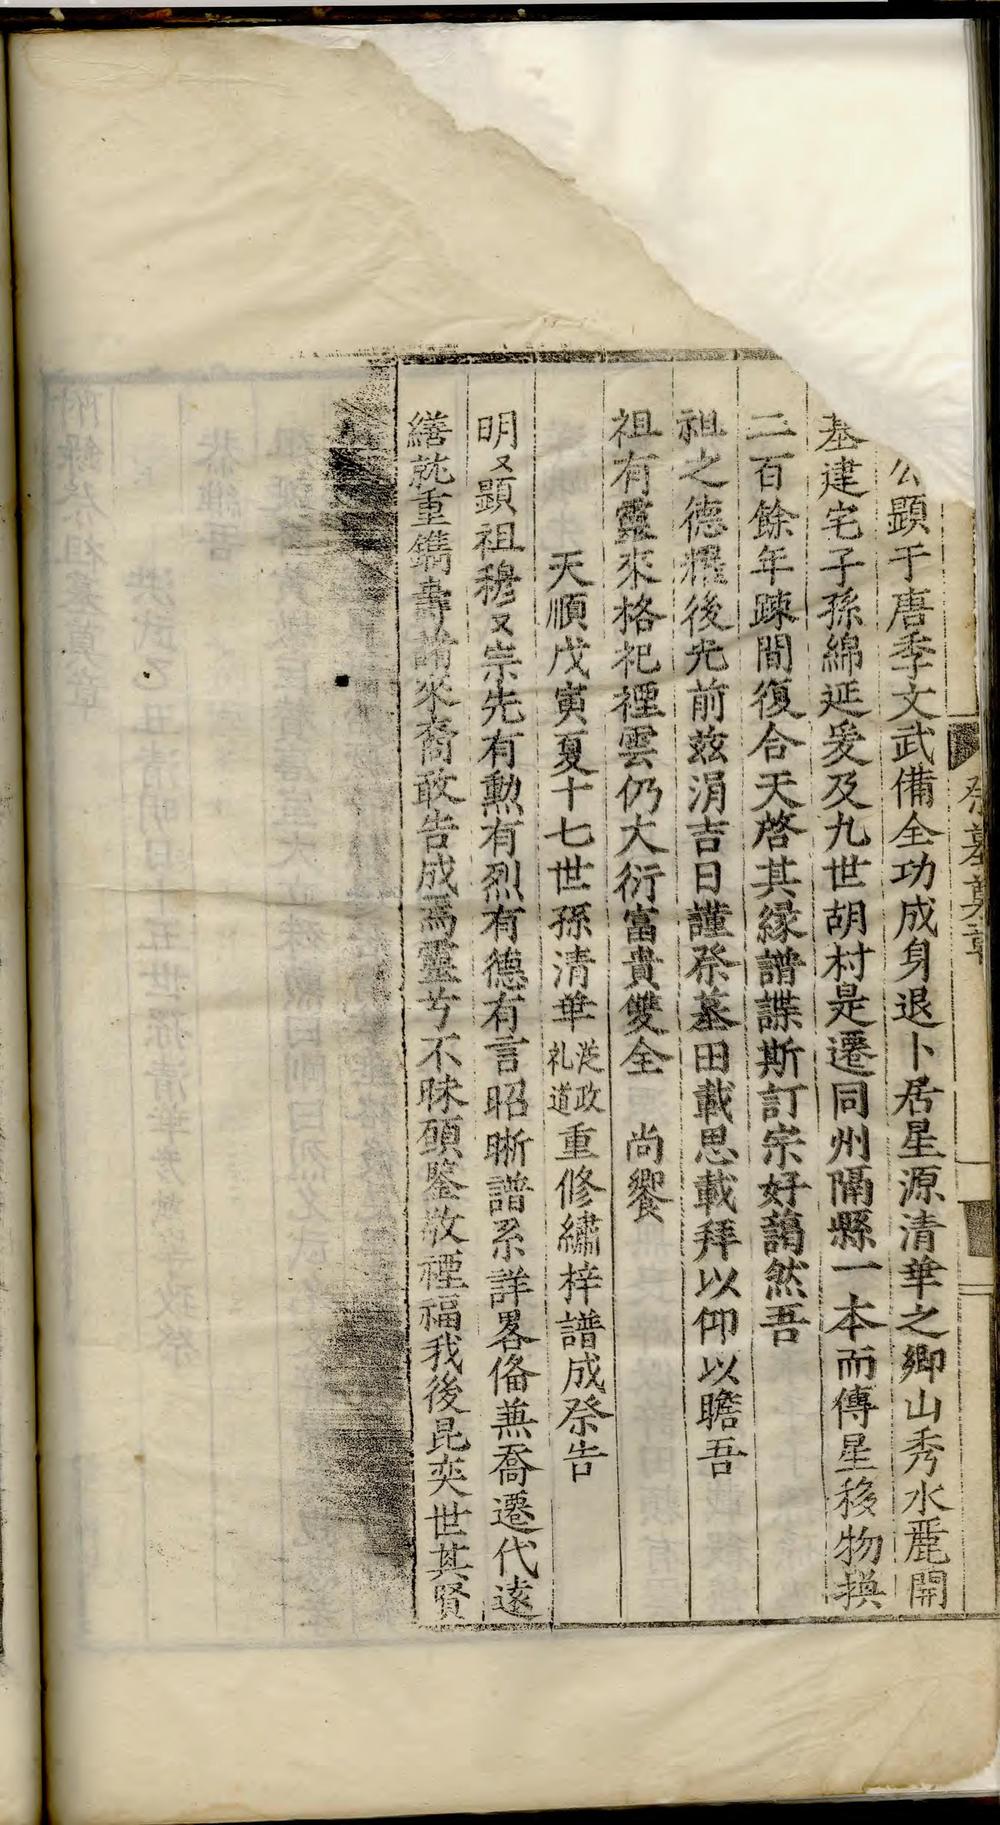 祭墓奠章
公顯于唐季文武備全功成身退卜居星源清華之鄉山秀水麗開
基建宅子孫綿延爰及九世胡村是遷同州隔縣一本而傳星移物換
二百餘年踈間復合天啓其緣譜諜斯訂宗好藹然吾
祖之德耀後光前兹涓吉日謹祭墓田載思載拜以仰以瞻吾
祖有靈來格祀禋雲仍大衍富貴雙全 尚饗
天順戊寅夏十七世孫清華從政礼道重修繡梓譜成祭告
明又顯祖穆又宗先有勲有烈有德有言昭晰譜系詳畧俻兼喬遷代遠
繕就重鐫壽諸來裔敢告成焉靈兮不昧頋鑒敬禋福我後昆奕世其賢